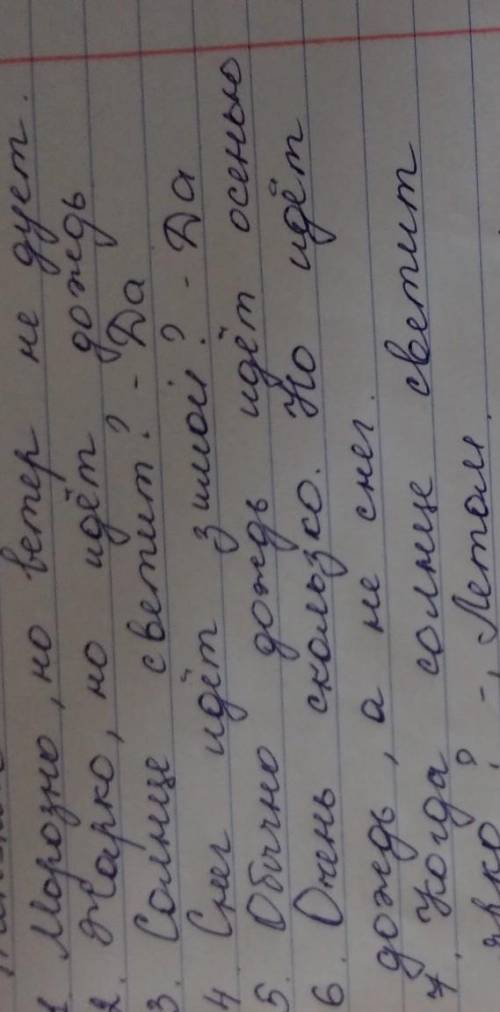 1. Морозно, но ветер не дует.
2. Жарко, но идёт дождь
3. Солнце светит? - Да
4. Снег идёт зимой? - Да
5. Обычно дождь идёт осенью
6. Очень скользко. Но идёт
дождь, а не снег.
7. Когда солнце светит
ярко? -, Летом